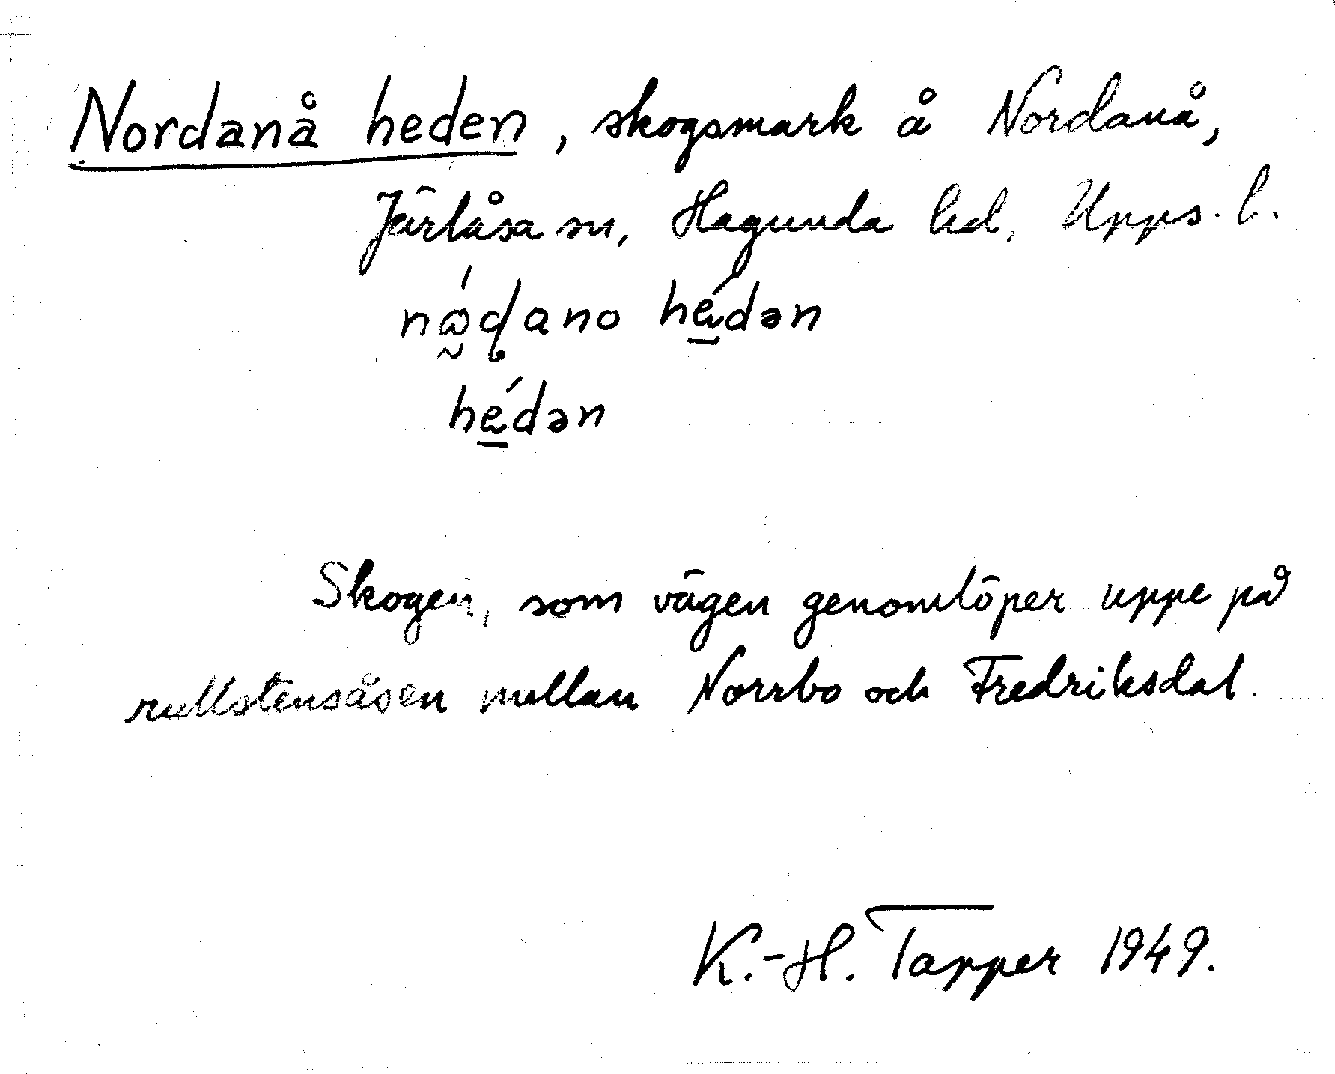 Nordanå heden, skogsmark å Nordanå,
Järlåsa sn, Hagunda hd, Upps. l.
nǫ́ɖano hédən
hédən
Skogen, som vägen genomlöper uppe på
rullstensåsen mellan Norrbo och Fredriksdal.
K.-H. Tapper 1949.